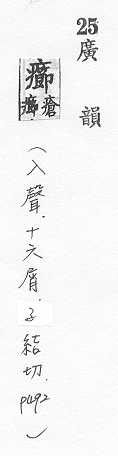 25
廣韻
癤
癤瘡
（入聲．十六屑．子結切．p492）